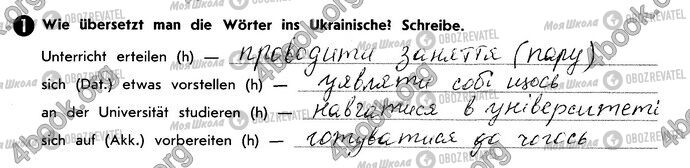 1 Wie übersetzt man die Wörter ins Ukrainische? Schreibe.
Unterricht erteilen (h) — проводити заняття (пару)
sich (Dat.) etwas vorstellen (h) — уявляти собі щось
an der Universität studieren (h) — навчатися в університеті
sich auf (Akk.) vorbereiten (h) — готуватися до чогось